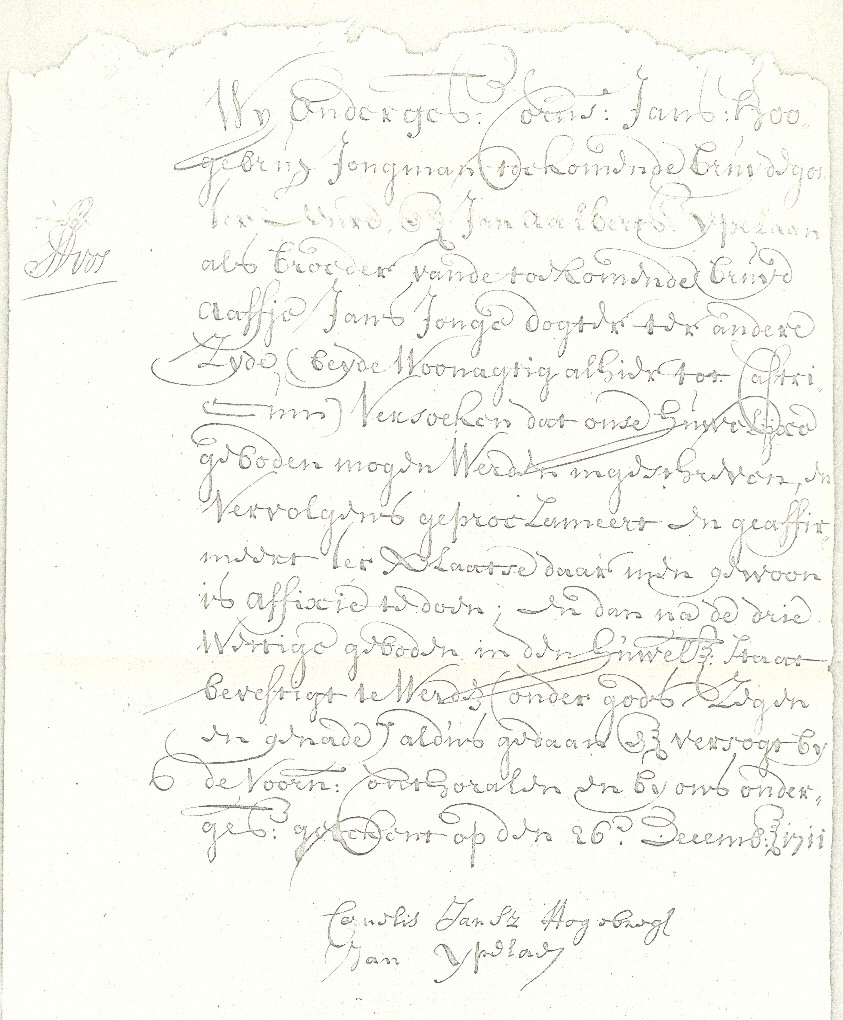 Wy Onderges: Corns: Jans: Hoo-
gebrug Jongman toekomende bruydegom
ter Eenre, En Jan Aalbertsz Ypelaan
als broeder vande toekomende bruyd
Aaffje Jans Jonge dogter ter andere
Zyde, (beyde Woonagtig alhier tot Castri-
cum) Versoeken dat onse Huwelyxe
geboden mogen Werden ingeschreven, en
Vervolgens geproclameert en geaffir-
meert ter Plaatse daar men gewoon
is affixie te doen; en dan na de drie
Wettige geboden in den Huwel: Staat
bevestigt te Werden (onder gods Zegen
en genade) aldus gedaan en versogt by
de Voorn: Conthoralen en by ons onder-
ges: geteekent op den 26e Decemb: 1711
Cornelis Jansz Hogebregt
Jan Ypelaan